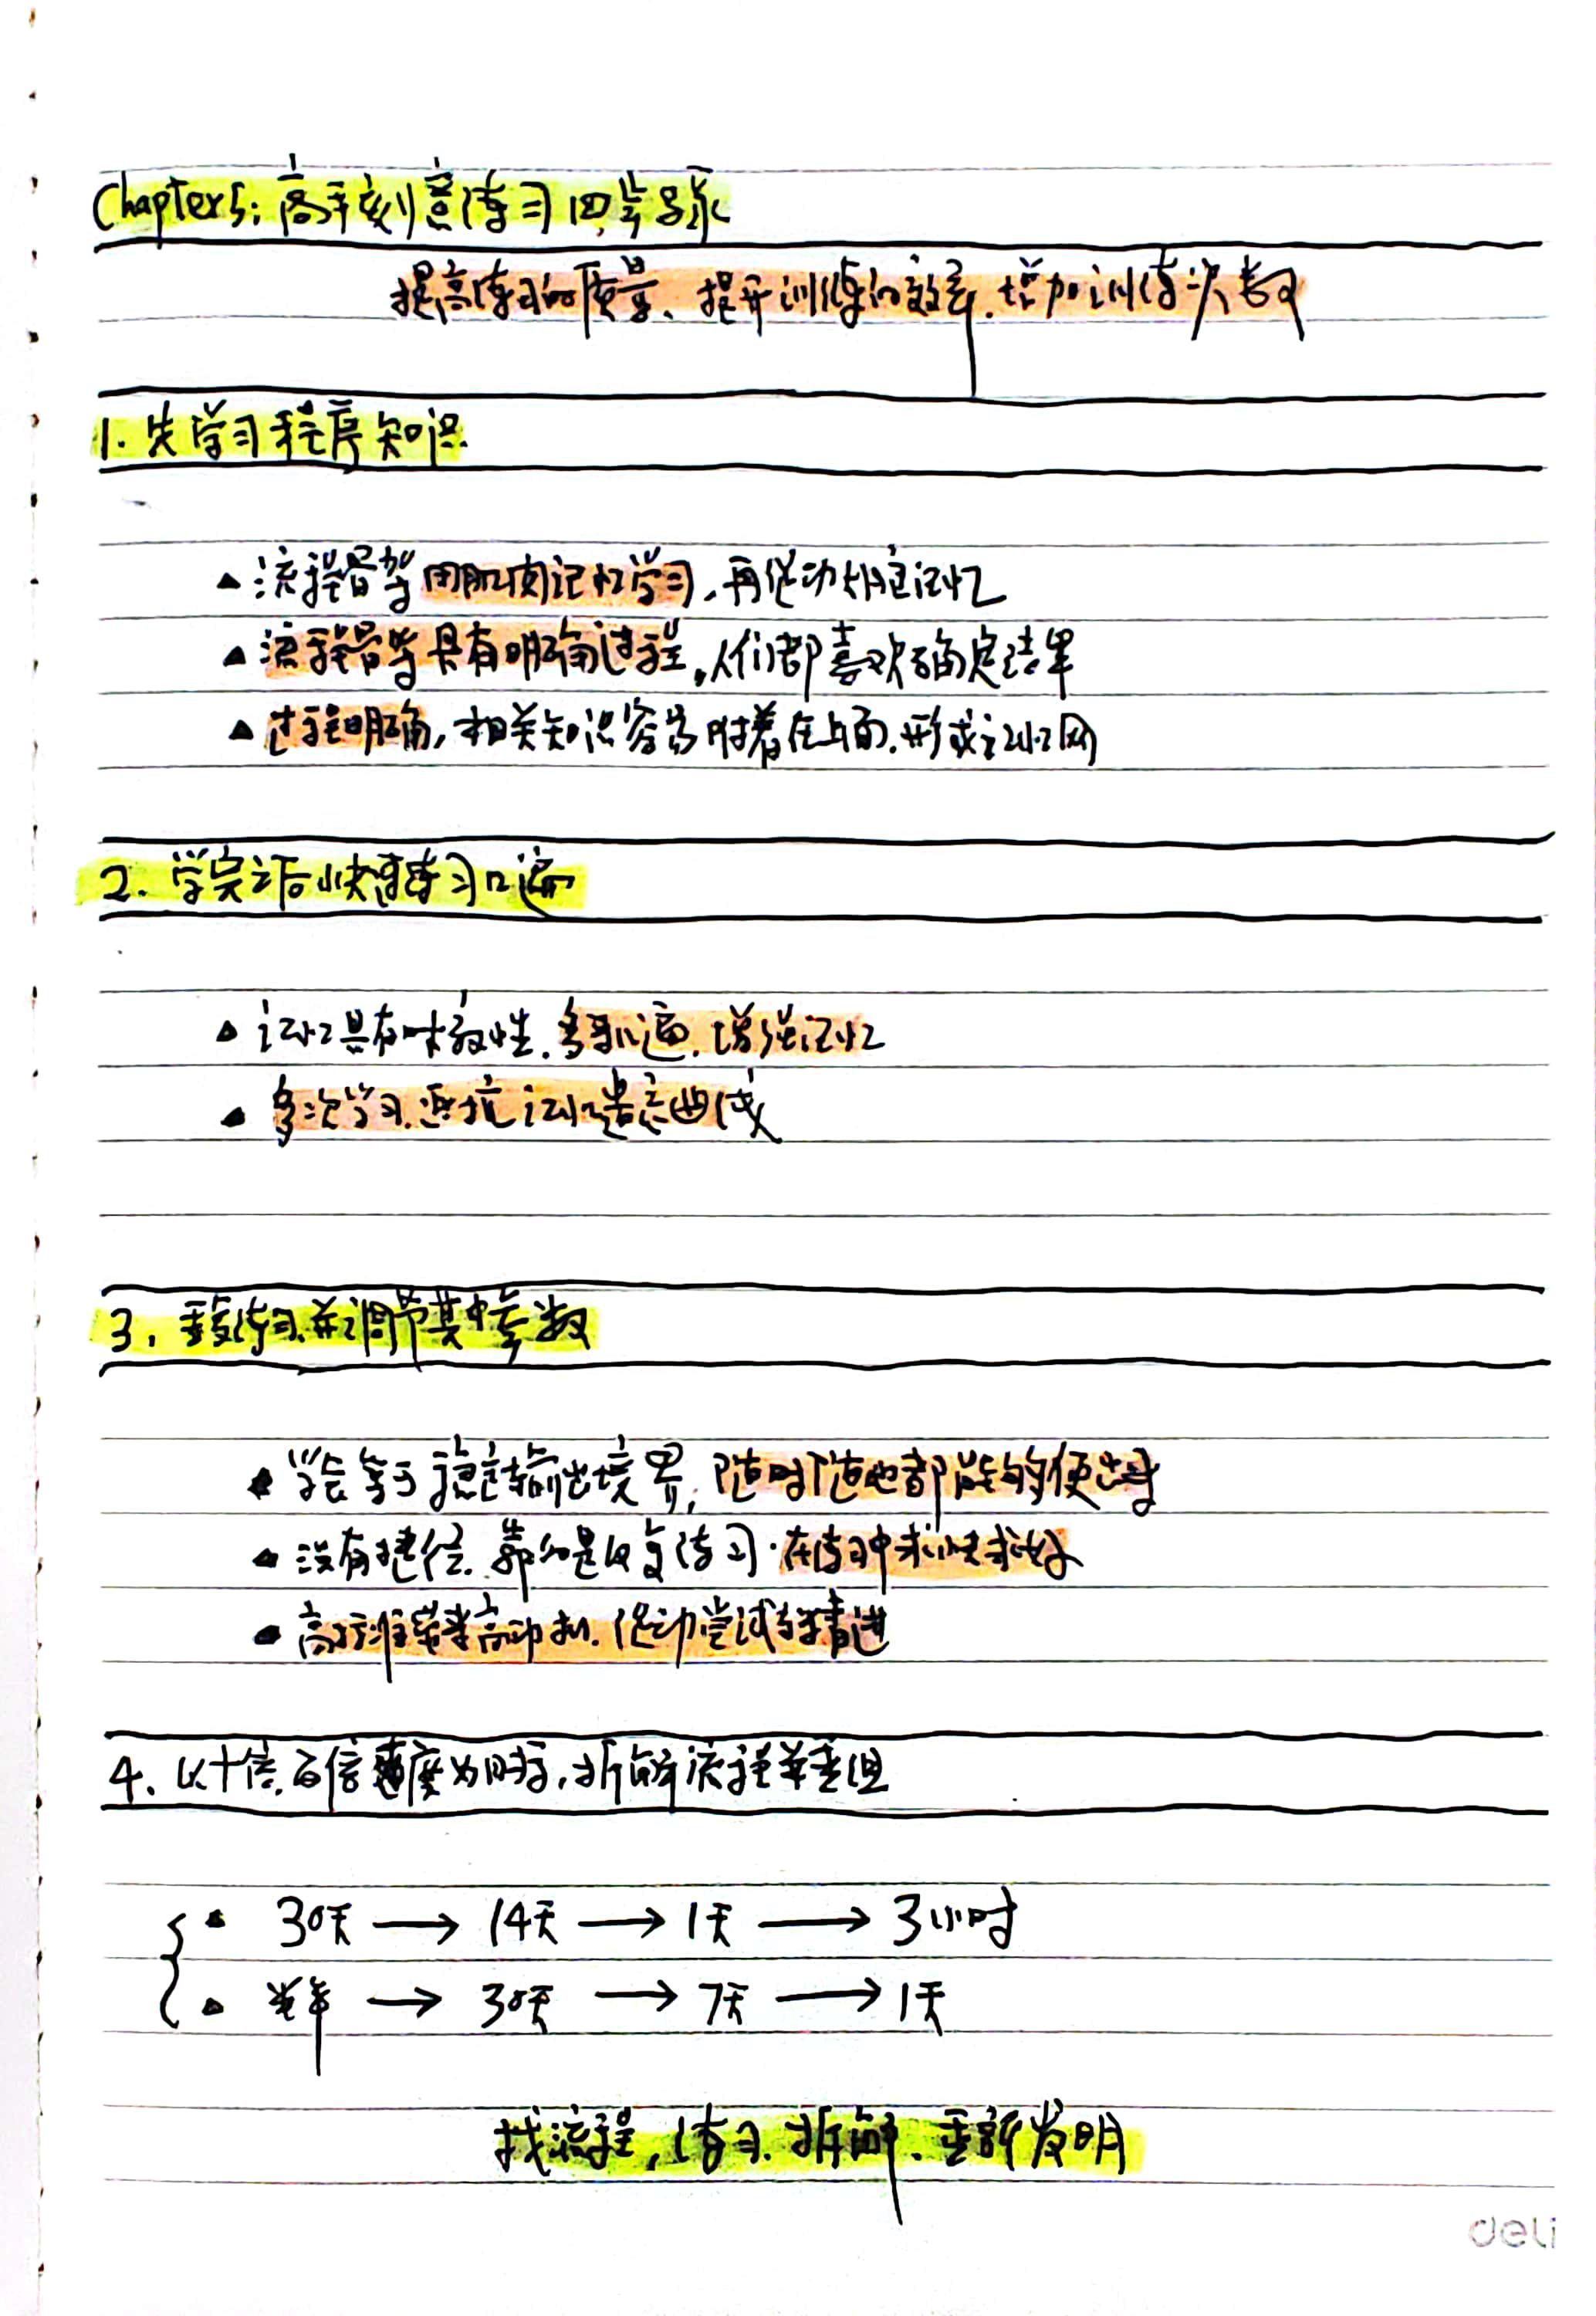 Chapter5: 高手刻意练习四步录
提高练习的质量、提升训练的效率.增加训练次数
1. 先学习程序知识
流程骨架用肌肉记忆学习,再促动大脑记忆
流程骨架具有明确过程,人们都喜欢确定结果
过程明确,相关知识容易附着在上面.形成记忆网
2. 学完之后快速练习几遍
记忆具有时效性.多来几遍.增强记忆
多次学习.逆抗记忆遗忘曲线
3. 重复练习.并调节其中参数
学会等于稳定输出境界,随时随地都能够使出来
没有捷径.靠的是反复练习.在练习中求快求好
高标准带来高动机.促动尝试与精进
4. 以十倍.百倍速度为目标,拆解流程并重组
30天 → 14天 → 1天 → 3小时
半年 → 30天 → 7天 → 1天
找流程,练习.拆解.重新发明
deli